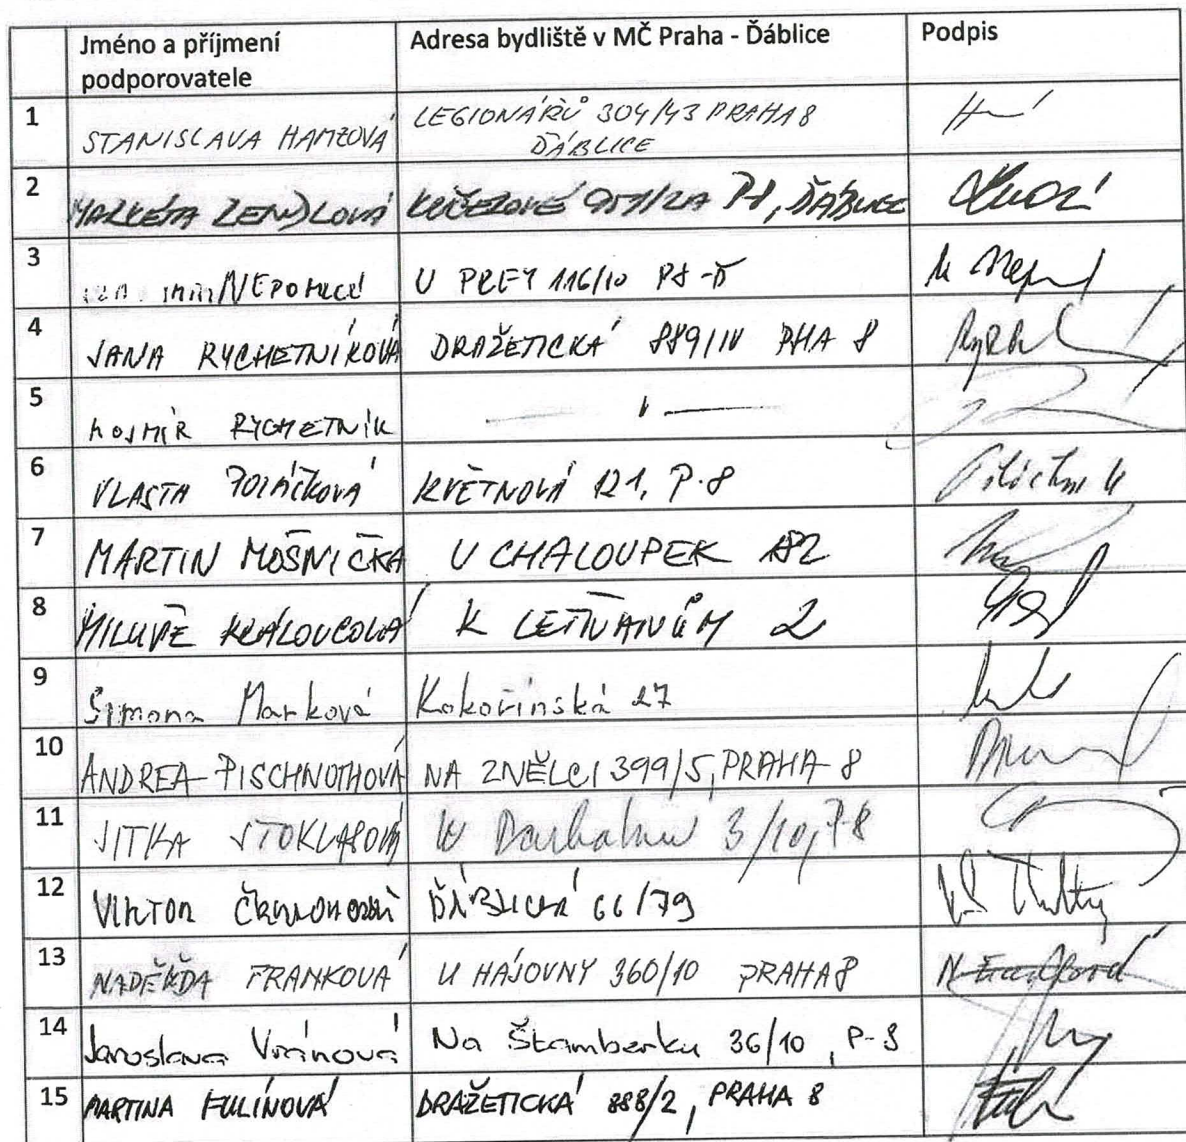 Jméno a příjmení podporovatele Adresa bydliště v MČ Praha - Ďáblice Podpis
1 STANISLAVA HAMZOVÁ LEGIONÁŘŮ 304/43 PRAHA 8 ĎÁBLICE
2 MARKÉTA ZENDLOVÁ ĎÁBLICE
3 NEPOMUCKÝ U PREFY 116/10 P8-Ď
4 JANA RYCHETNÍKOVÁ DRAŽETICKÁ PHA 8
5 RYCHETNÍK
6 VLASTA POLÁČKOVÁ KVĚTNOVÁ 121, P.8
7 MARTIN MOŠNIČKA U CHALOUPEK 182
8 MILUŠE KRÁLOVCOVÁ K LETŇANŮM 2
9 Simona Marková Kokořínská 27
10 ANDREA PISCHNOTHOVÁ NA ZNĚLCI 399/5, PRAHA 8
11 JITKA STOKLASOVÁ 3/10, P8
12 VIKTOR ČRNOHORSKÝ ĎÁBLICKÁ 66/79
13 NADĚŽDA FRANKOVÁ U HÁJOVNY 360/10 PRAHA 8
14 Jaroslava Vránová Na Štamberku 36/10, P-8
15 MARTINA FULÍNOVÁ DRAŽETICKÁ 888/2, PRAHA 8